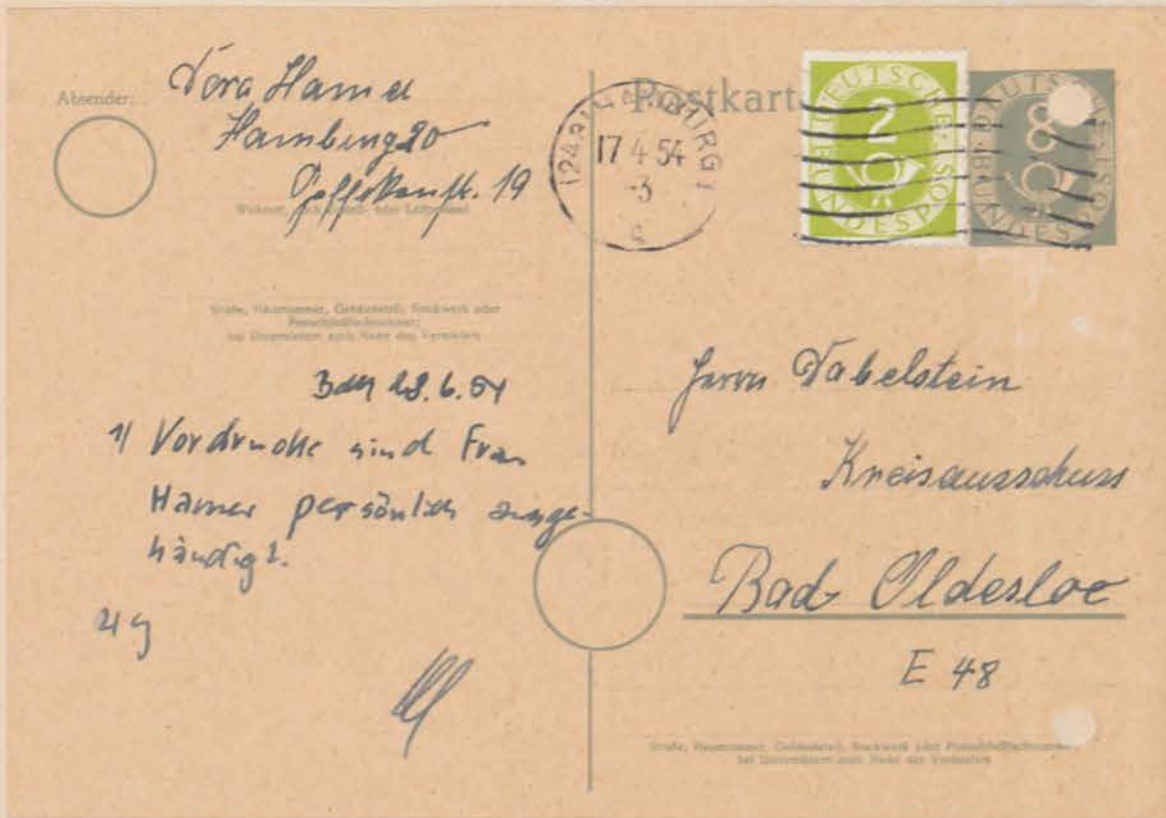 Absender:
Dora Hamer
Hamburg 20
19
Wohnort, auch Zustell- oder Leitpostamt
Straße, Hausnummer, Gebäudeteil, Stockwerk oder
Postschließfachnummer;
bei Untermietern auch Name des Vermieters
28.6.54
1/ Vordrucke sind Frau
Hamer persönlich ausge-
händigt.
Postkarte
(24a) HAMBURG 1
17 4 54
-3
DEUTSCHE BUNDESPOST
2
DEUTSCHE BUNDESPOST
8
Herrn Dabelstein
Kreisausschuss
Bad Oldesloe
E 48
Straße, Hausnummer, Gebäudeteil, Stockwerk oder Postschließfachnummer
bei Untermietern auch Name des Vermieters